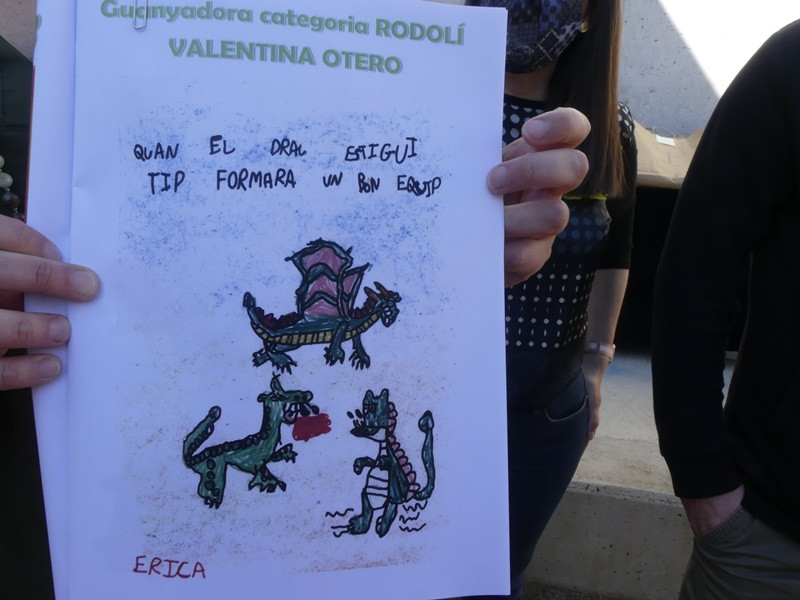 Guanyadora categoria RODOLÍ
VALENTINA OTERO
QUAN EL DRAC ESTIGUI
TIP FORMARA UN BON EQUIP
ERICA